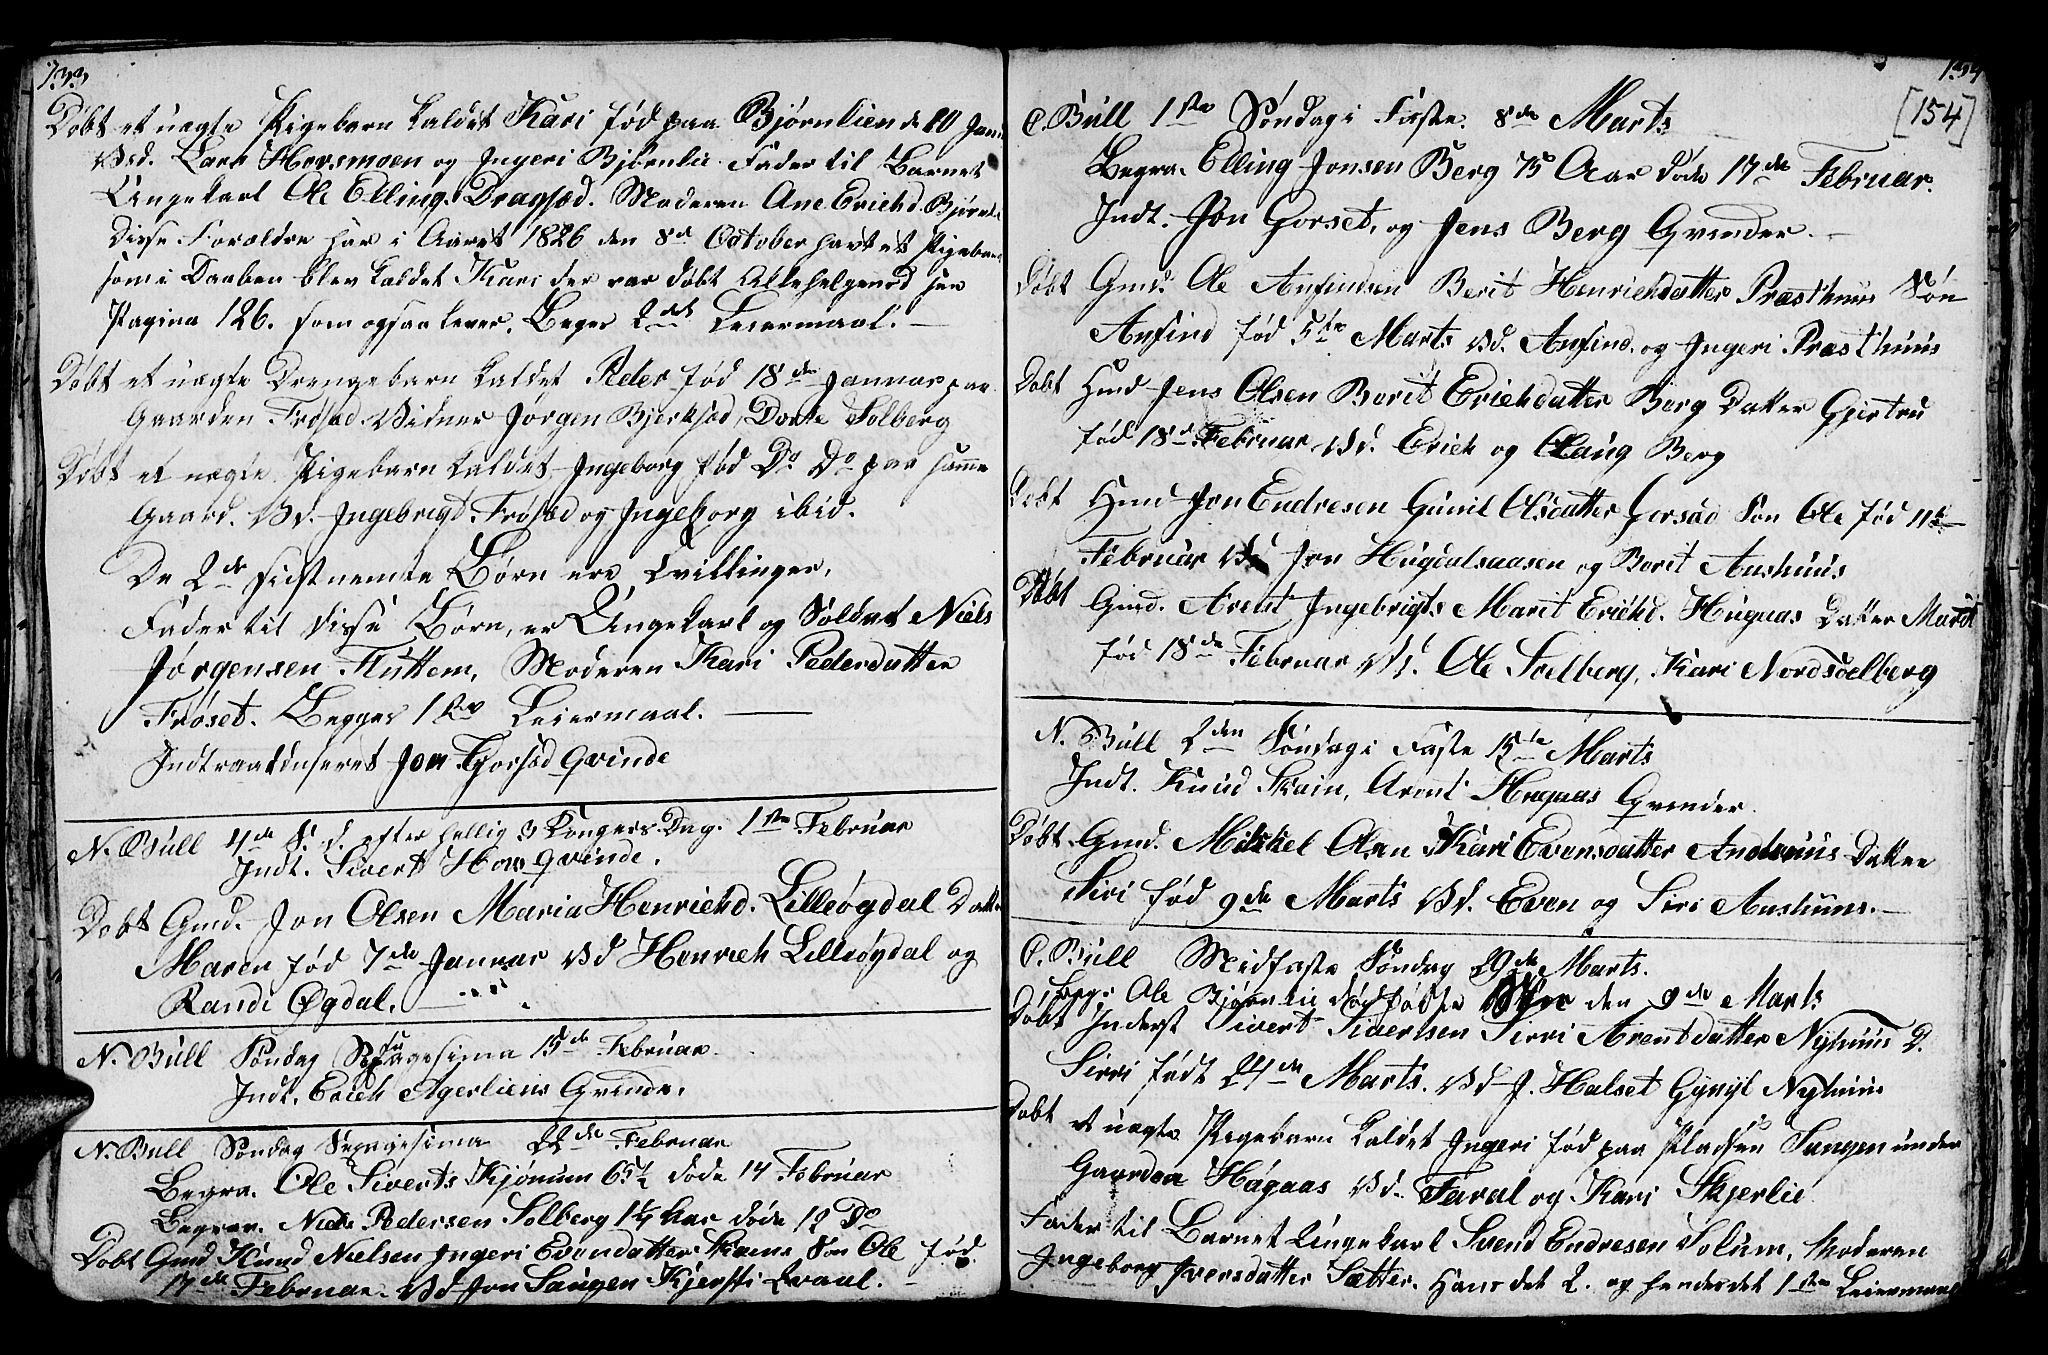 133
Døbt et uægte Pigebarn kaldet Kari fød paa Bjørnlien d. 20 Janu
Vsd. Lars Horsmoen og Ingeri Bjørnlie Fader til Barnet
Ungekarl Ole Elling. Dragsæd. Moderen Ane Erichd. Bjørnli
Disse Forældre har i Aaret 1826 den 8de October havt et Pigebarn
som i Daaben blev kaldet Kari der var døbt Allehelgensd see
Pagina 126. som ogsaa lever. Begges 2det Leiermaal. —
Døbt et uægte Drengebarn kaldet Peder fød 18de Januar paa
Gaarden Frøsæd. Vidner Jørgen Bjerksæd, Dorte Solberg
Døbt et uægte Pigebarn kaldet Ingeborg fød Do Do paa samme
Gaard. Vd. Ingebrigt Frøsæd og Ingeborg ibid.
De 2de sidstnemte Børn ere Tvillinger,
Fader til disse Børn, er Ungekarl og Soldat Niels
Jørgensen Fluttem, Moderen Kari Pedersdatter
Frøset. Begges 1ste Leiermaal. —
Indtraaduseret Jon Gorsæd Qvinde
N. Bull 4de S. d. efter hellig 3 Kongers Dag. 1ste Februar
Indt. Sivert Hov Qvinde.
Døbt Gmd. Jon Olsen Maria Henrichd. Lilleøgdal Datter
Maren fød 7de Januar Vd Henrich Lilleøgdal og
Randi Øgdal. —
N. Bull Søndag Sexagesima 15de Februar.
Indt. Erich Agerliens Qvinde.
N. Bull Søndag Sexagesima 22de Februar
Begra. Ole Siverts Kjønum 65½ døde 14 Februar
Begrav. Niels Pedersen Solberg 1¼ Aar døde 12 Do
Døbt Gmd Knud Nielsen Ingeri Evensdatter Skame Søn Ole fød
17de Februar. Vd Jon Saugen Kjersti Kvaal. —
134
[154]
C. Bull 1ste Søndag i Faste. 8de Marts
Begra. Elling Jonsen Berg 75 Aar døde 17de Februar.
Indt. Jon Gorset, og Jens Berg Qvinder. —
Døbt Gmd. Ole Anfindsen Berit Henrichdatter Præsthuus Søn
Anfind fød 5te Marts Vd. Anfind. og Ingeri Præsthuus
Døbt Hmd Jens Olsen Borit Erichdatter Berg Datter Gjertru
fød 18de Februar Vd. Erich og Olaug Berg
Døbt Hmd Jon Endresen Gunil Olsdatter Gorsæd Søn Ole fød 11te
Februar Vd Jon Hugdalsaasen og Borit Aushuus
Døbt Gmd. Arent Ingebrigts Marit Erichd. Hugaas Datter Marit
fød 18de Februar Vd. Ole Soelberg, Kari Nordsoelberg
N. Bull 2den Søndag i Faste 15te Marts
Indt. Knud Skain, Arent Hugaas Qvinder.
Døbt Gmd. Mikkel Olsen Kari Evensdatter Aushuus Datter
Siri fød 9de Marts Vd. Even og Siri Aushuus. —
C. Bull Midfaste Søndag 29de Marts.
Begr. Ole Bjørnlie den 9de Marts
Døbt Inderst Sivert Sivertsen Sirri Arentdatter Nyhuus D.
Sirri født 24de Marts. Vd J. Halset Gyryl Nyhuus
Døbt et uægte Pigebarn kaldet Ingeri fød paa Pladsen Saugen under
Gaarden Høgaas Vd. Taral og Kari Skjerlie
Fader til Barnet Ungekarl Svend Endresen Solum, Moderen
Ingeborg Iversdatter Sætter. Hans det 2. og hendes det 1ste Leiermaal